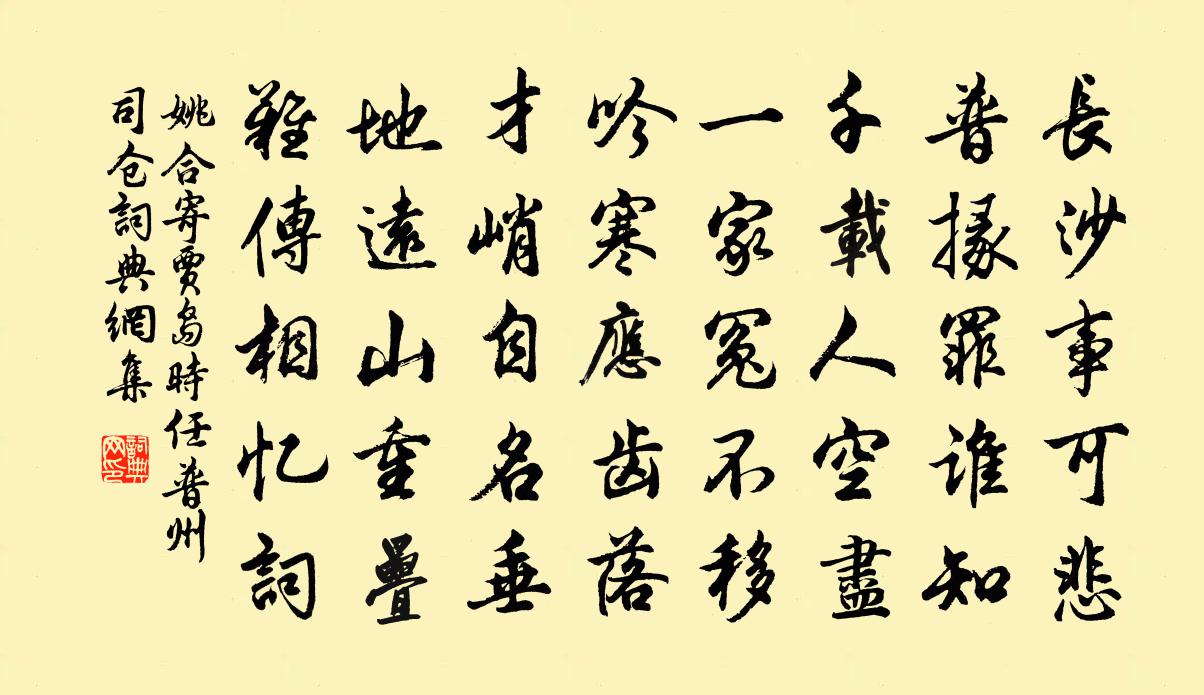 長沙事可悲
普掾罪誰知
千載人空盡
一家冤不移
吟寒應齿落
才峭自名垂
地遠山重疊
難傳相忆詞
姚合寄賈島時任普州
司仓詞典網集
詞典
网印